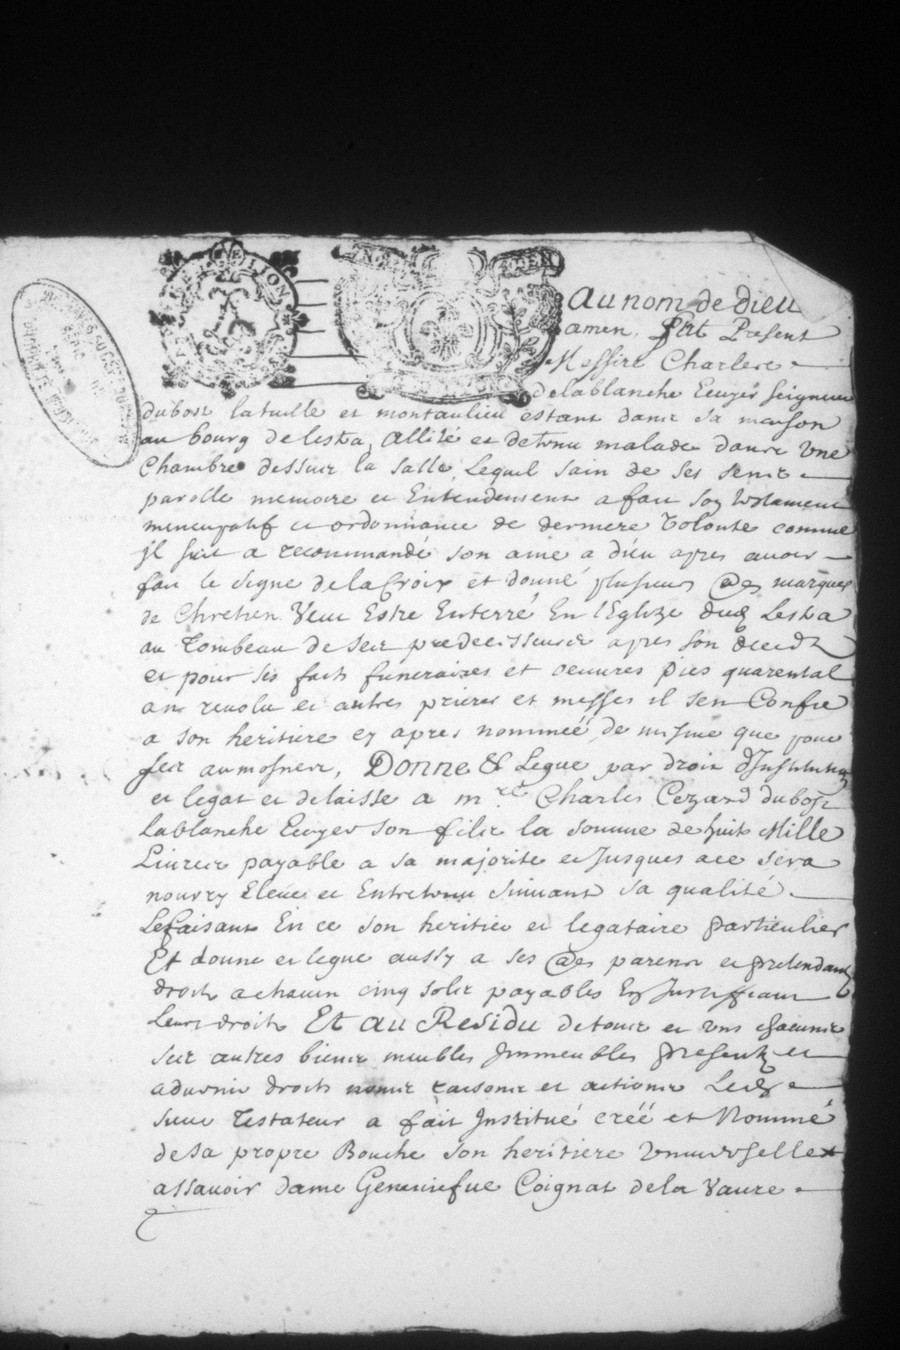 au nom de dieu
amen. fut Present
Messire Charles
delablanche Ecuyer seigneur
dubost latuille et montaulieu estant dans sa maison
au bourg de lestra, allité et detenu malade dans une
Chambre dessus la salle, Lequel sain de ses sens
parolle memoire et Entendement a fait son testament
nuncupatif et ordonnance de derniere volonté comme
jl suit a recommandé son ame a dieu apres avoir
fait le signe de la Croix et donné plusieurs @es marques
de Chretien Veut Estre Enterré En l'Eglize dud Lestra
au Tombeau de ses predecesseurs apres son deceds
et pour ses faits funeraires et oeuvres pies quarental
an revolu et autres prieres et messes il s'en Confie
a son heritiere cy apres nommée, de mesme que pour
ses aumosnes, Donne & Legue par droit d'Institution
et legat et delaisse a mre Charles Cezard dubost
Lablanche Ecuyer son fils la somme de huit Mille
Livres payable a sa majorite et Jusques a ce sera
nourry Elevé et Entretenu suivant sa qualité
Le faisant En ce son heritier et legataire particulier
Et donne et legue aussy a ses @es parens et pretendants
droits a chacun cinq sols payables En Justiffiant
Leurs droits Et au Residu de tous et uns chacuns
ses autres biens meubles Jmmeubles presents et
advenir droits noms raisons et actions Led
sieur Testateur a fait Institué créé et Nommé
de sa propre Bouche son heritiere universelle
assavoir dame Geneviefve Coignat de la Vaure